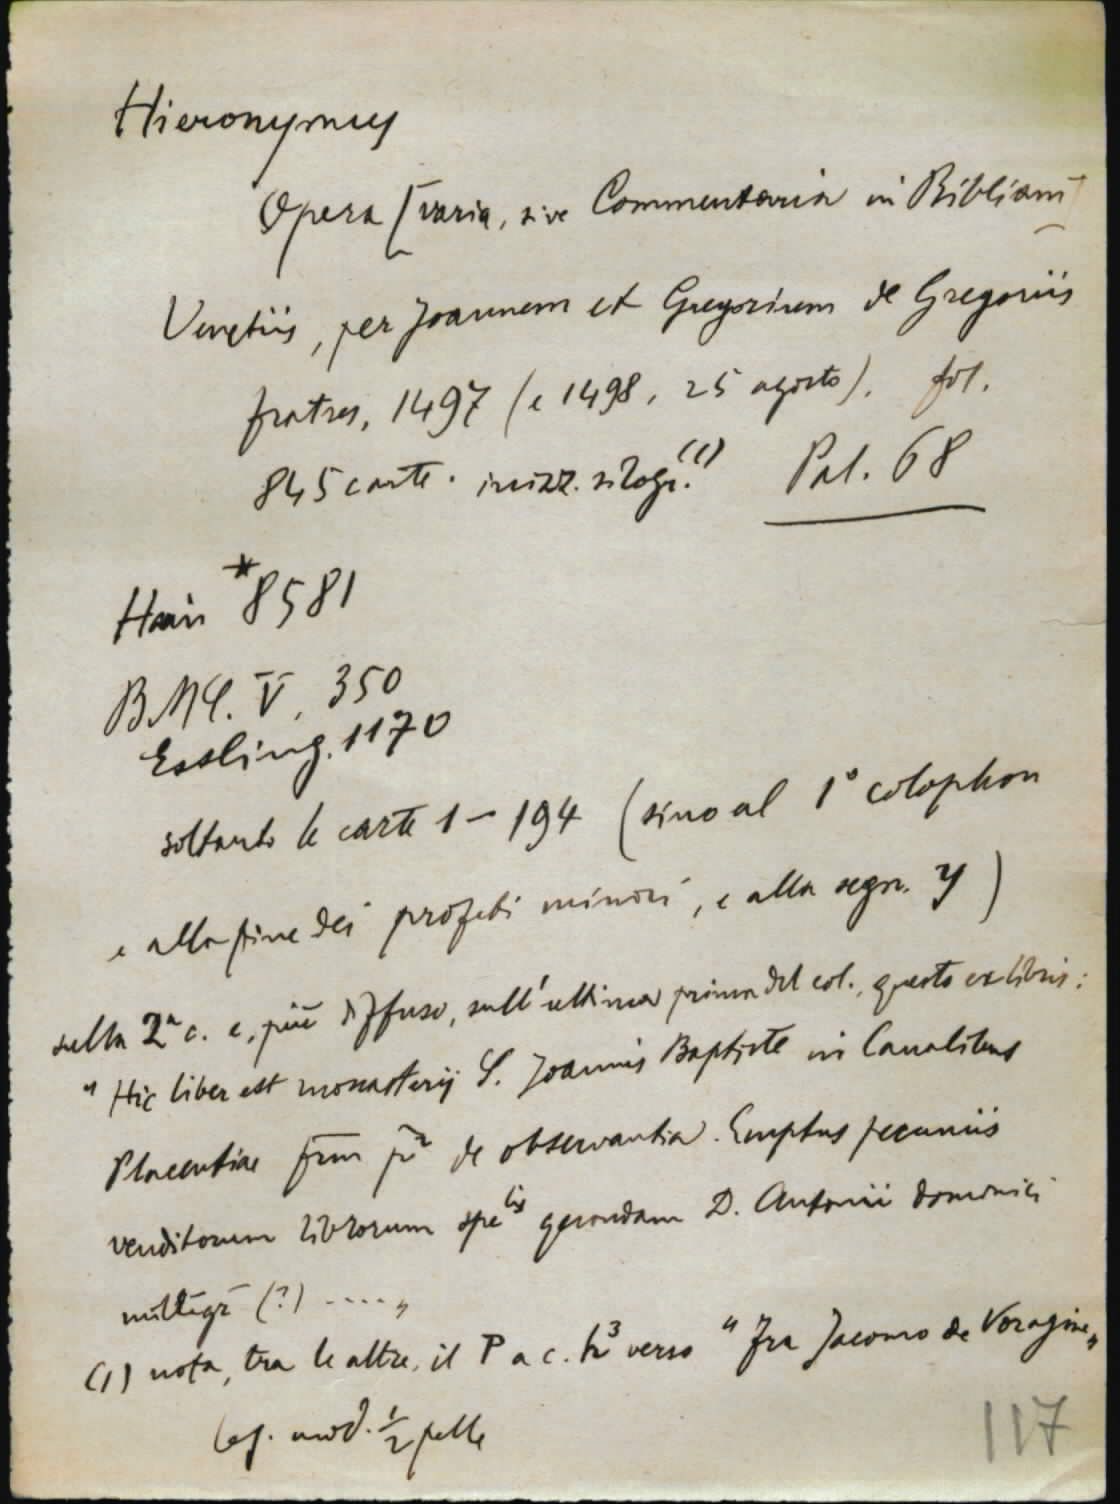 Hieronymus
Opera [varia, sive Commentaria in Bibliam]
Venetiis, per Joannem et Gregorium de Gregoriis
fratres, 1497 (e 1498, 25 agosto). fol.
845 carte. inizz. silogr.(1) Pal. 68
Hain *8581
B.M.C. V, 350
Essling. 1170
soltanto le carte 1-194 (sino al 1° colophon
e alla fine dei profeti minori, e alla segn. y)
sulla 2ª c. e, più diffuso, sull'ultima prima del col., questo ex libris:
"Hic liber est monasterij S. Joannis Baptiste in Canalibus
Placentiae frm pr de observantia. Emptus pecuniis
venditorum librorum spe lis quondam D. Antonii dominici
(?) ...."
(1) nota, tra le altre, il P a c. h3 verso "Fra Jacomo de Voragine"
leg. mod. ½ pelle
117